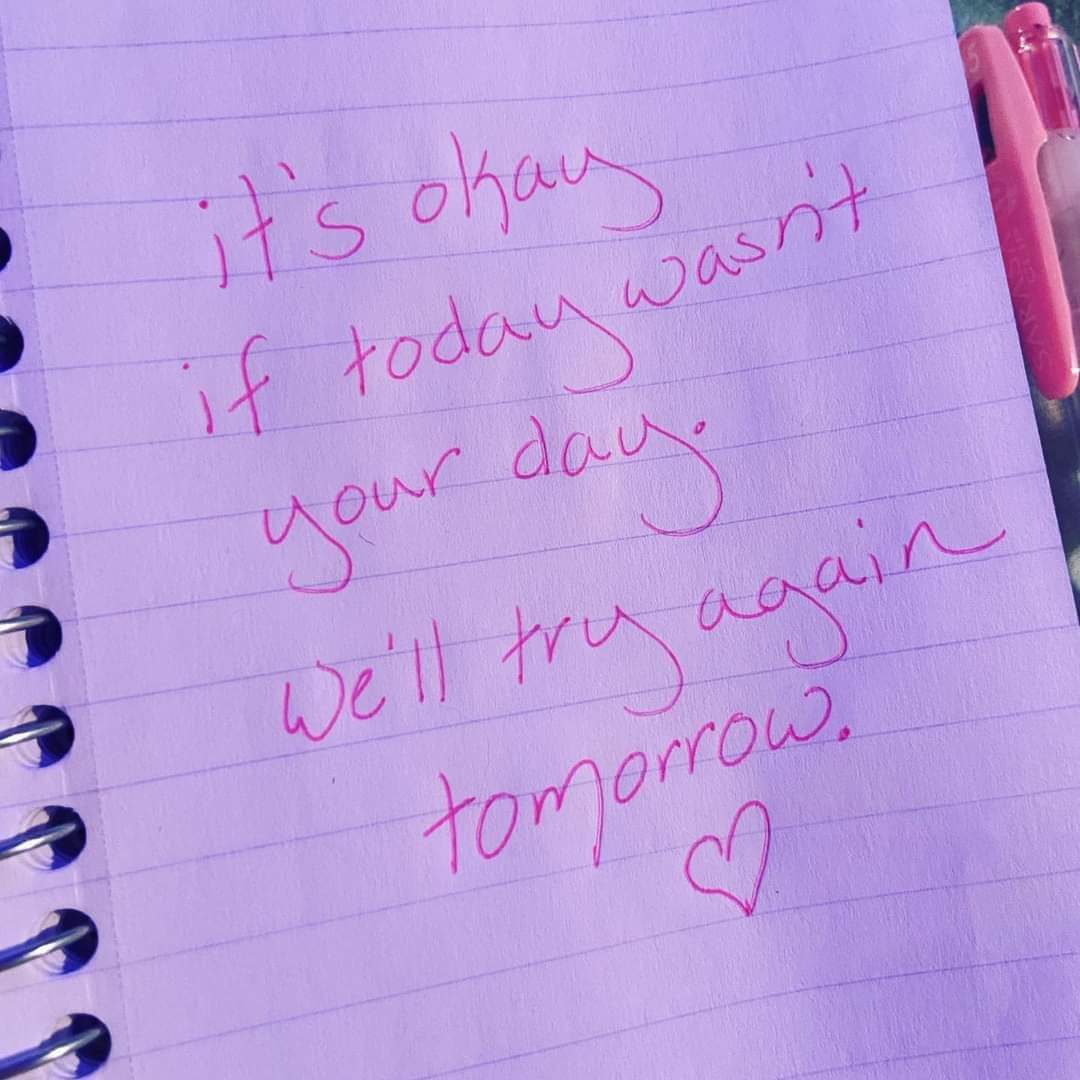 it's okay
if today wasn't
your day.
we'll try again
tomorrow.